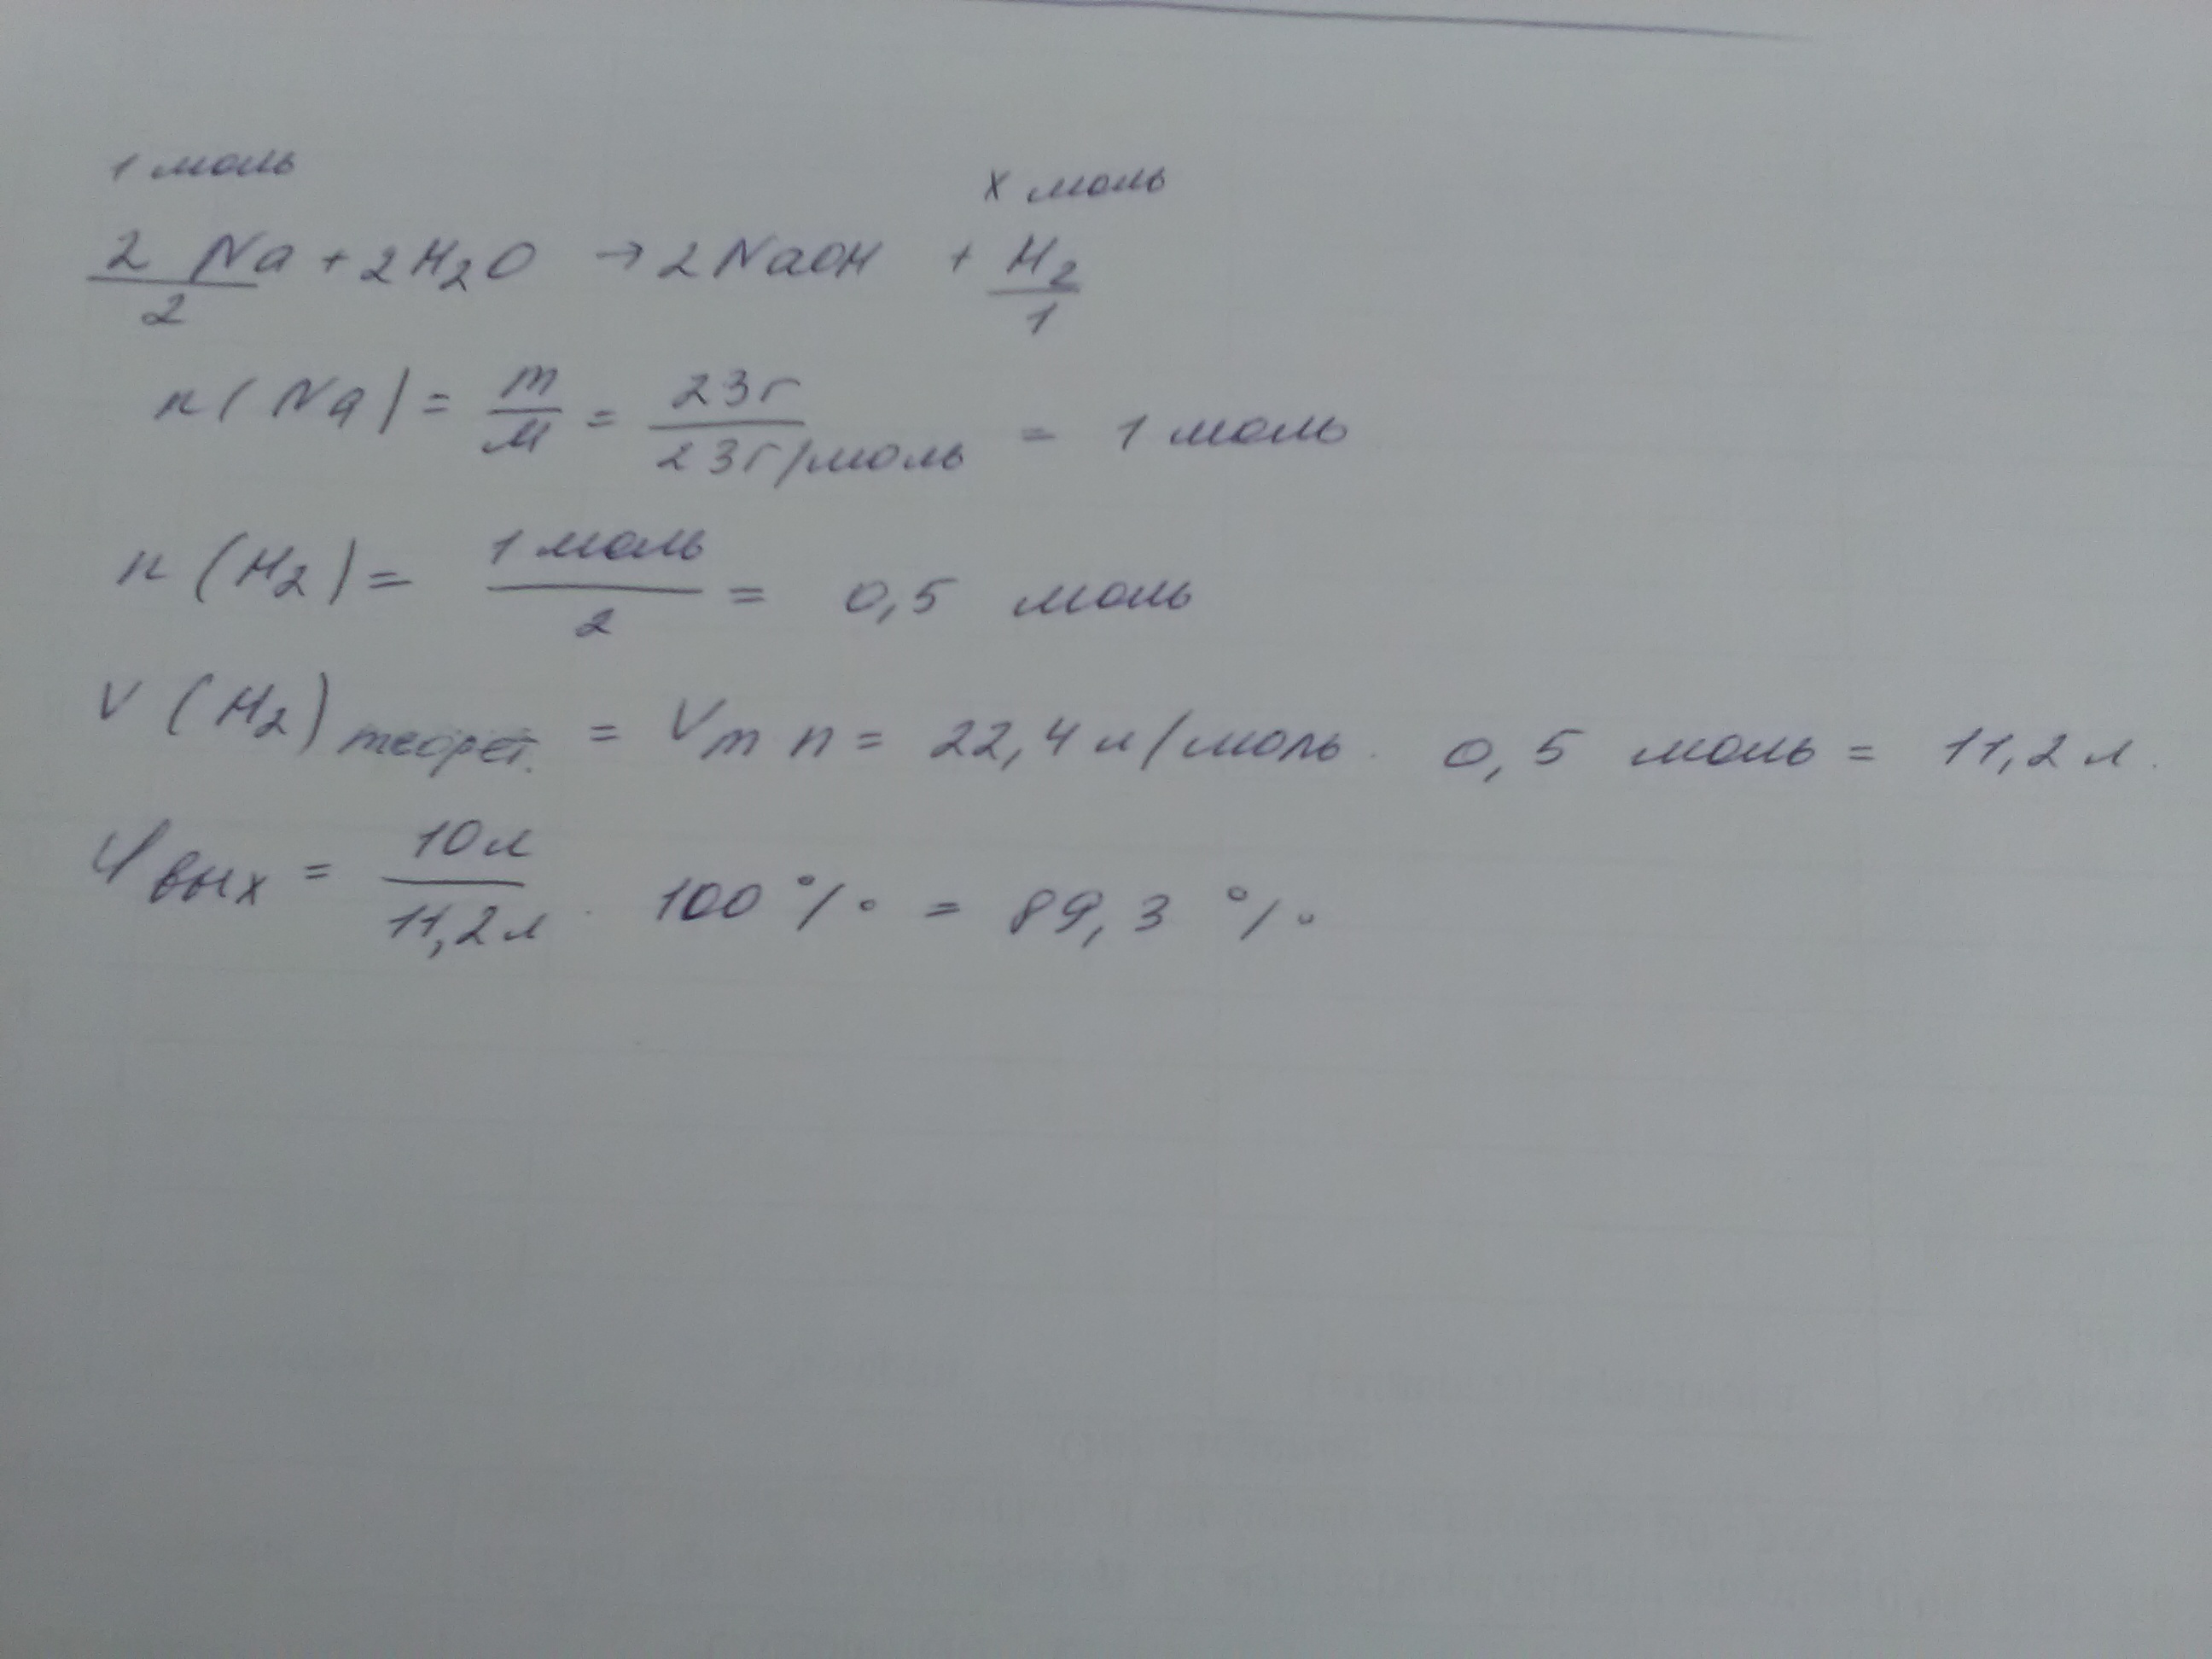 1 моль x моль
2 Na + 2H2O → 2NaOH + H2
2 1
n(Na) = m/M = 23г / 23г/моль = 1 моль
n(H2) = 1 моль / 2 = 0,5 моль
V(H2) теорет. = Vm n = 22,4 л/моль · 0,5 моль = 11,2 л.
φ вых = 10л / 11,2л · 100 % = 89,3 %